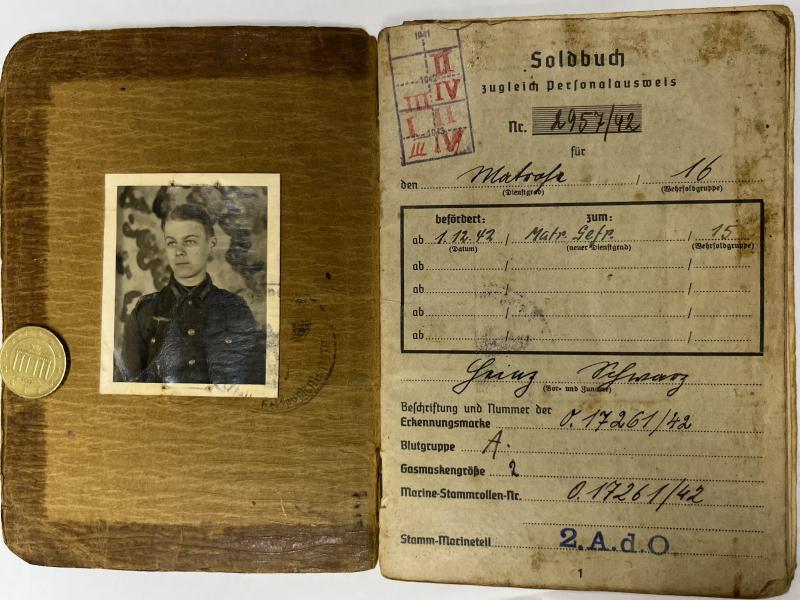 1941
II
1942
III IV
I II
1943
III IV
Soldbuch
zugleich Personalausweis
Nr. 2957/42
für
den Matrose / 16
(Dienstgrad) (Wehrsoldgruppe)
befördert: zum:
ab 1.12.42 / Matr. Gefr. / 15
(Datum) (neuer Dienstgrad) (Wehrsoldgruppe)
ab / /
ab / /
ab / /
ab / /
Heinz Schwarz
(Vor- und Zuname)
Beschriftung und Nummer der
Erkennungsmarke O. 17261/42
Blutgruppe A.
Gasmaskengröße 2
Marine-Stammrollen-Nr. O. 17261/42
Stamm-Marineteil 2.A.d.O.
1